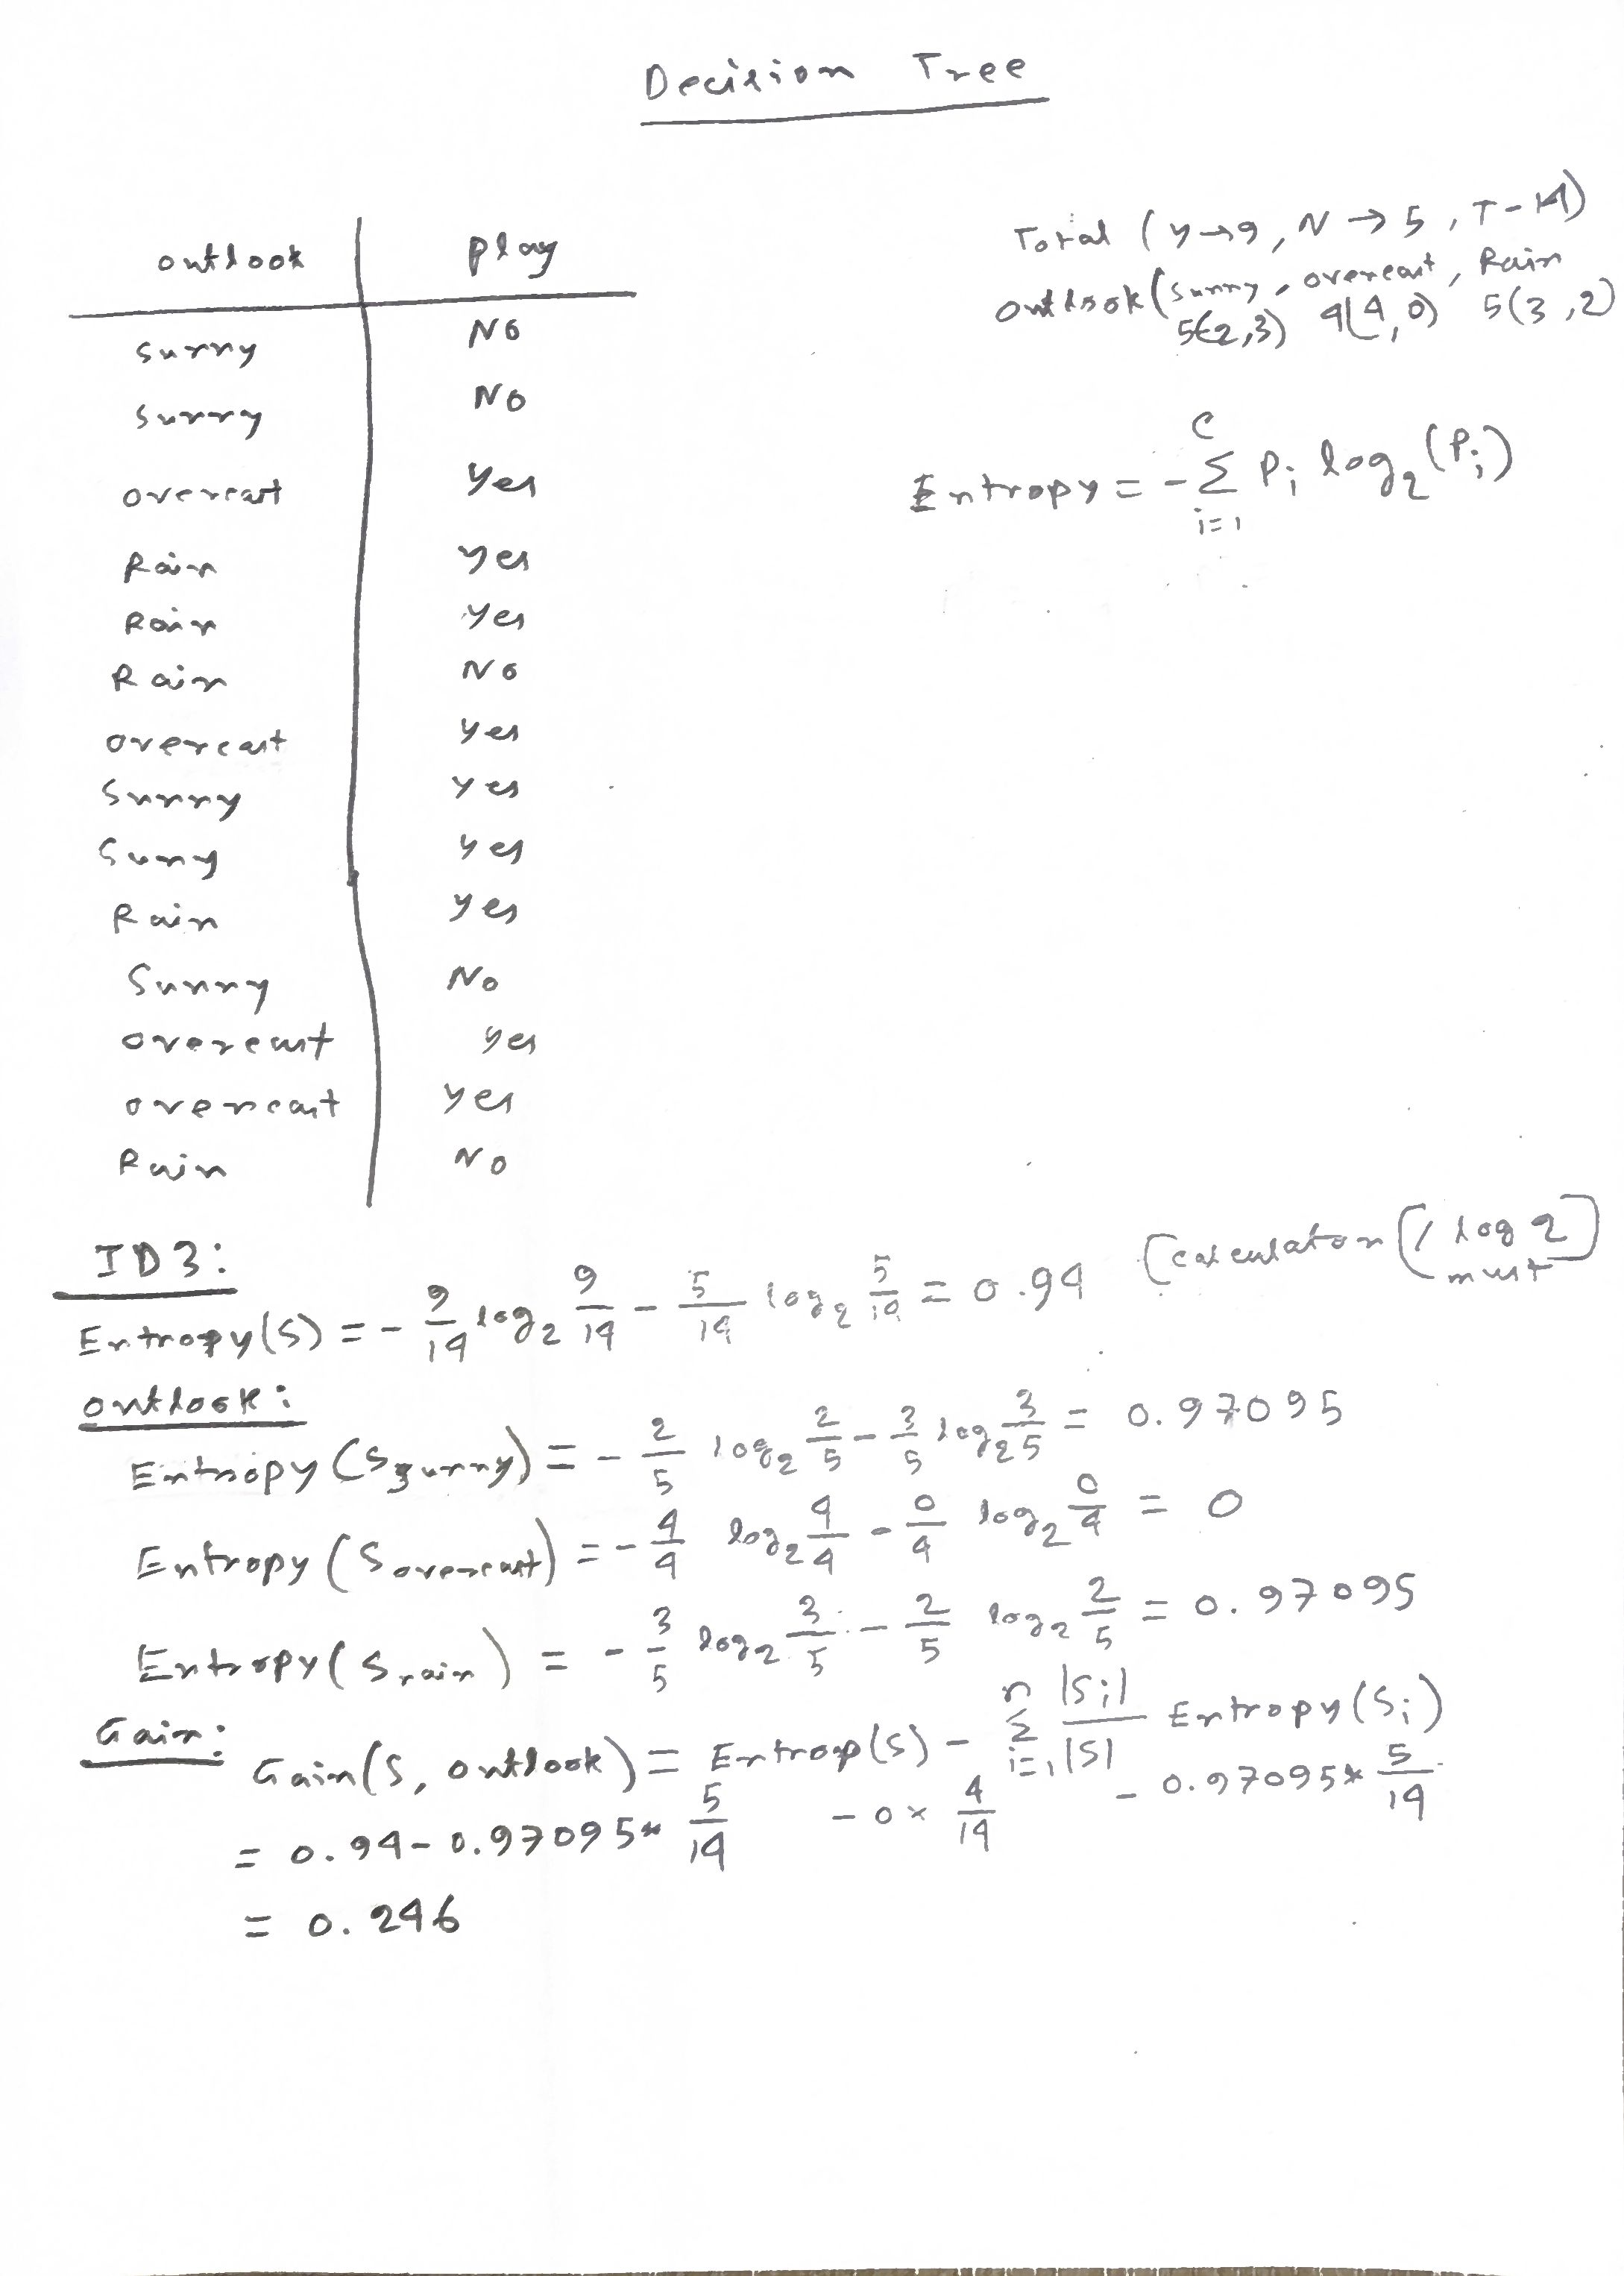 Decision Tree
outlook play
Sunny No
Sunny No
overcast Yes
Rain Yes
Rain Yes
Rain No
overcast Yes
Sunny Yes
Suny Yes
Rain Yes
Sunny No
overcast Yes
overcast Yes
Rain No
Total (y→9, N→5, T-14)
outlook (sunny, overcast, Rain
5(2,3) 4(4,0) 5(3,2)
Entropy = -Σ_{i=1}^{c} P_i log_2(P_i)
ID3:
Entropy(S) = - 9/14 log_2 9/14 - 5/14 log_2 5/14 = 0.94 [calculator (/ log 2 must]
outlook:
Entropy (S_sunny) = - 2/5 log_2 2/5 - 3/5 log_2 3/5 = 0.97095
Entropy (S_overcast) = - 4/4 log_2 4/4 - 0/4 log_2 0/4 = 0
Entropy (S_rain) = - 3/5 log_2 3/5 - 2/5 log_2 2/5 = 0.97095
Gain:
Gain(S, outlook) = Entrop(S) - Σ_{i=1}^{n} |S_i|/|S| Entropy(S_i)
= 0.94 - 0.97095* 5/14 - 0 × 4/14 - 0.97095* 5/14
= 0.246